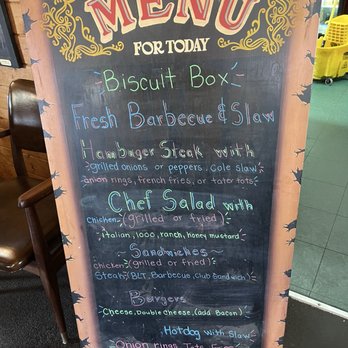 MENU
FOR TODAY
Biscuit Box
Fresh Barbecue & Slaw
Hambuger Steak with
grilled onions or peppers, Cole Slaw
onion rings, french fries, or tater tots
Chef Salad with
chicken (grilled or fried)
italian, 1000, ranch, honey mustard
Sandwiches
chicken (grilled or fried)
Steak, BLT, Barbecue, Club Sandwich)
Burgers
Cheese, Double Cheese, (add Bacon)
Hotdog with Slaw
Onion rings, Tots,